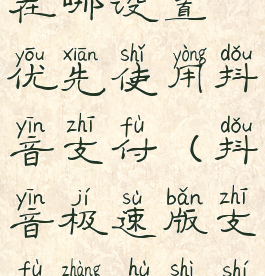 在哪设置
yōu xiān shǐ yòng dǒu
优先使用抖
yīn zhī fù dǒu
音支付（抖
yīn jí sù bǎn zhī
音极速版支
fù zhàng hù shì shí